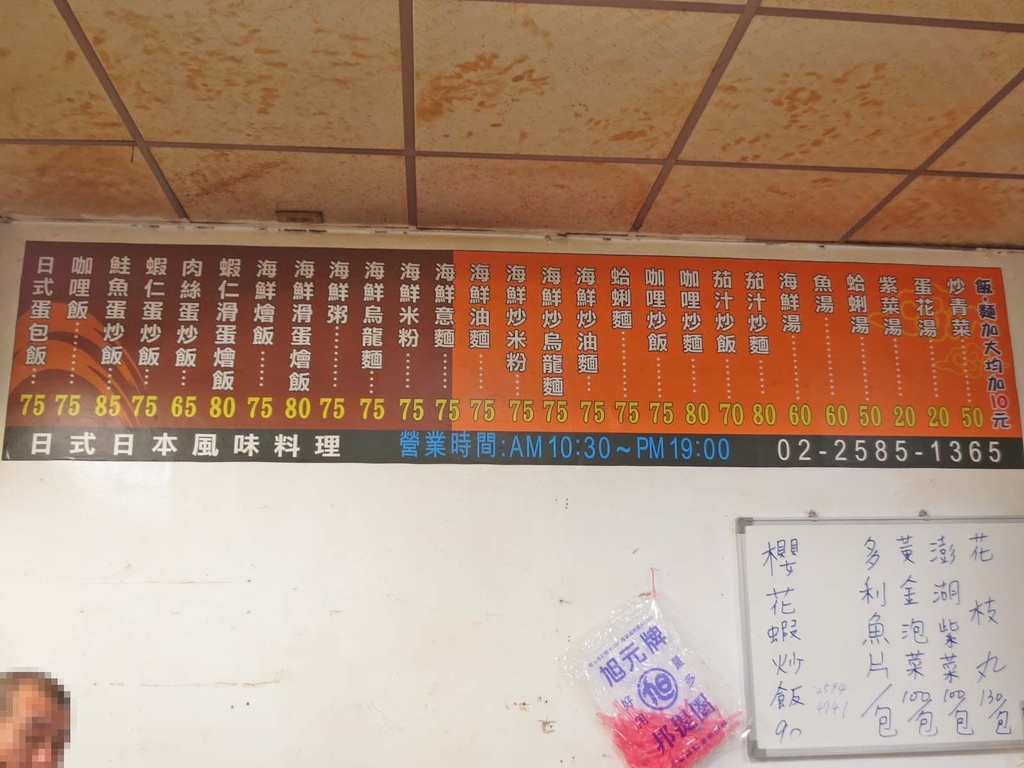 飯.麵加大均加10元
炒青菜......50
蛋花湯......20
紫菜湯......20
蛤蜊湯......50
魚湯......60
海鮮湯......60
茄汁炒麵......80
茄汁炒飯......70
咖哩炒麵......80
咖哩炒飯......75
蛤蜊麵......75
海鮮炒油麵......75
海鮮炒烏龍麵75
海鮮炒米粉......75
海鮮油麵......75
海鮮意麵......75
海鮮米粉......75
海鮮烏龍麵......75
海鮮粥......75
海鮮滑蛋燴飯80
海鮮燴飯......75
蝦仁滑蛋燴飯80
肉絲蛋炒飯...65
蝦仁蛋炒飯...75
鮭魚蛋炒飯...85
咖哩飯......75
日式蛋包飯...75
日式日本風味料理
營業時間:AM 10:30~PM 19:00
02-2585-1365
花枝丸130/包
澎湖紫菜100/包
黃金泡菜100/包
多利魚片/包
櫻花蝦炒飯90
旭元牌
旭
邦提閣